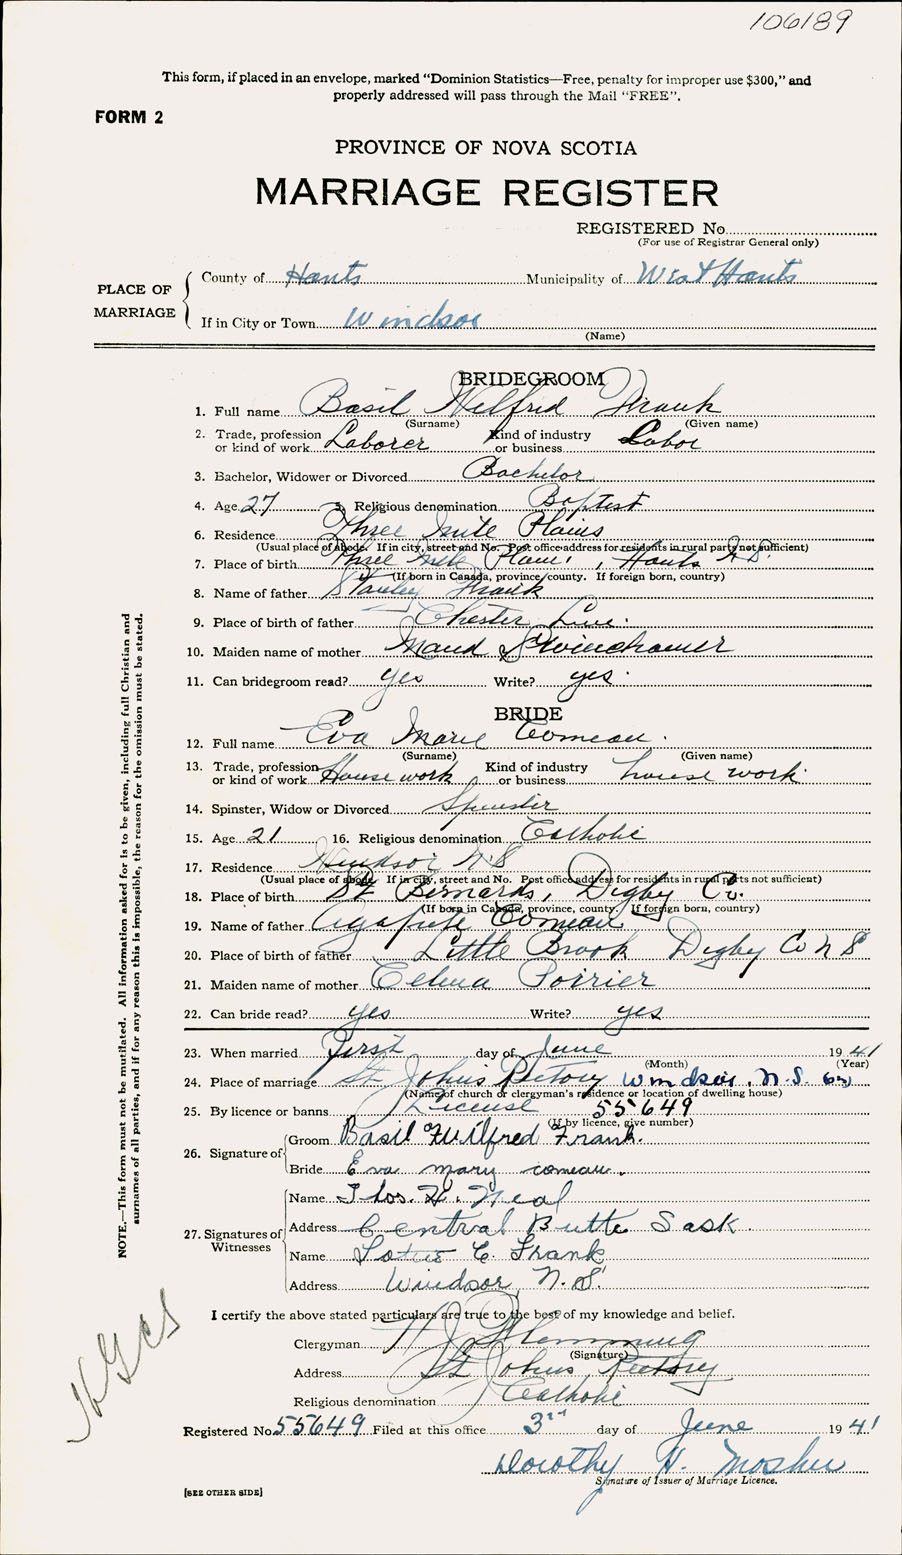 106189
This form, if placed in an envelope, marked "Dominion Statistics—Free, penalty for improper use $300," and
properly addressed will pass through the Mail "FREE".
FORM 2
PROVINCE OF NOVA SCOTIA
MARRIAGE REGISTER
REGISTERED No.
(For use of Registrar General only)
PLACE OF MARRIAGE
County of Hants Municipality of West Hants
If in City or Town Windsor
(Name)
BRIDEGROOM
1. Full name Basil Wilfred Frank
(Surname) (Given name)
2. Trade, profession or kind of work Laborer Kind of industry or business Labor
3. Bachelor, Widower or Divorced Bachelor
4. Age 27 5. Religious denomination Baptist
6. Residence Three Mile Plains
(Usual place of abode. If in city, street and No. Post office address for residents in rural parts not sufficient)
7. Place of birth Three Mile Plains, Hants N.S.
(If born in Canada, province, county. If foreign born, country)
8. Name of father Stanley Frank
9. Place of birth of father Chester
10. Maiden name of mother Maud Swinehamer
11. Can bridegroom read? yes Write? yes
BRIDE
12. Full name Eva Marie Comeau
(Surname) (Given name)
13. Trade, profession or kind of work House work Kind of industry or business house work
14. Spinster, Widow or Divorced Spinster
15. Age 21 16. Religious denomination Catholic
17. Residence Windsor N S
(Usual place of abode. If in city, street and No. Post office address for residents in rural parts not sufficient)
18. Place of birth St Bernards, Digby Co.
(If born in Canada, province, county. If foreign born, country)
19. Name of father Comeau
20. Place of birth of father Little Brook Digby Co N S
21. Maiden name of mother Celina Poirier
22. Can bride read? yes Write? yes
23. When married First day of June 1941
(Month) (Year)
24. Place of marriage St. John's Rectory Windsor, N.S.
(Name of church or clergyman's residence or location of dwelling house)
25. By licence or banns License 55649
(If by licence, give number)
26. Signature of
Groom Basil Wilfred Frank.
Bride Eva mary comeau.
27. Signatures of Witnesses
Name Thos. H. Neal
Address Central Butte Sask.
Name C. Frank
Address Windsor, N.S.
I certify the above stated particulars are true to the best of my knowledge and belief.
Clergyman
(Signature)
Address St Johns Rectory
Religious denomination Catholic
Registered No. 55649 Filed at this office 3rd day of June 1941
Dorothy H. Mosher
Signature of Issuer of Marriage Licence.
[SEE OTHER SIDE]
NOTE.—This form must not be mutilated. All information asked for is to be given, including full Christian and
surnames of all parties, and if for any reason this is impossible, the reason for the omission must be stated.